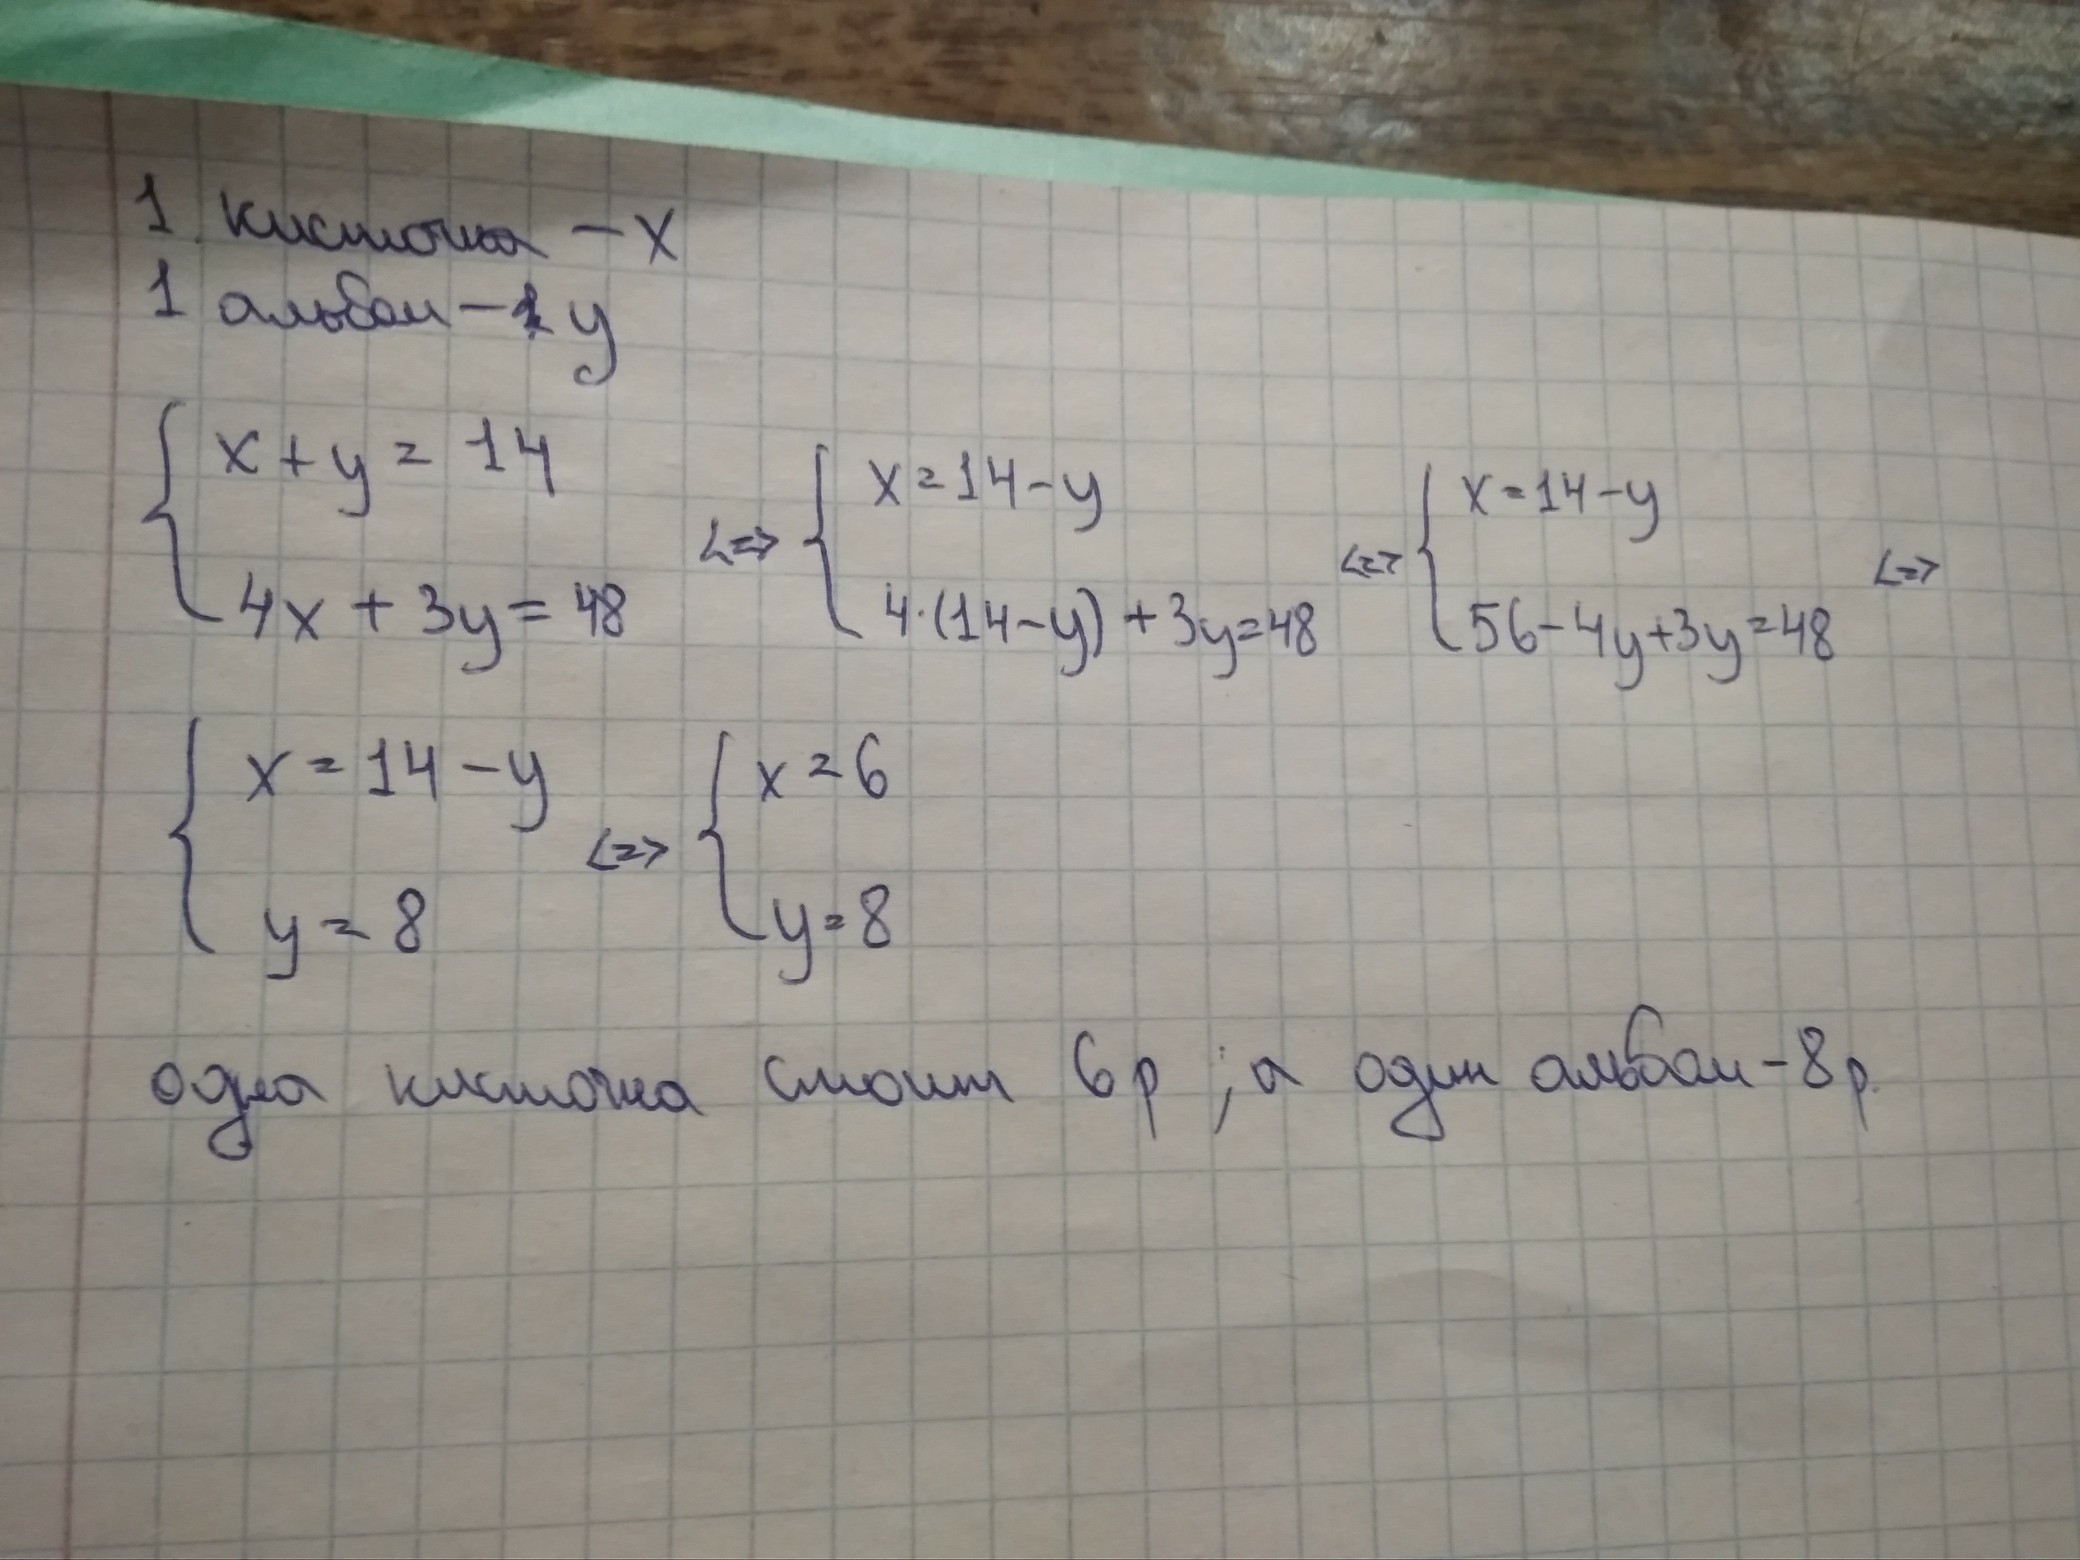 1 кисточка - x
1 альбом - y
x + y = 14
4x + 3y = 48
<=>
x = 14 - y
4·(14-y) + 3y = 48
<=>
x = 14 - y
56 - 4y + 3y = 48
<=>
x = 14 - y
y = 8
<=>
x = 6
y = 8
одна кисточка стоит 6р ; а один альбом - 8р.